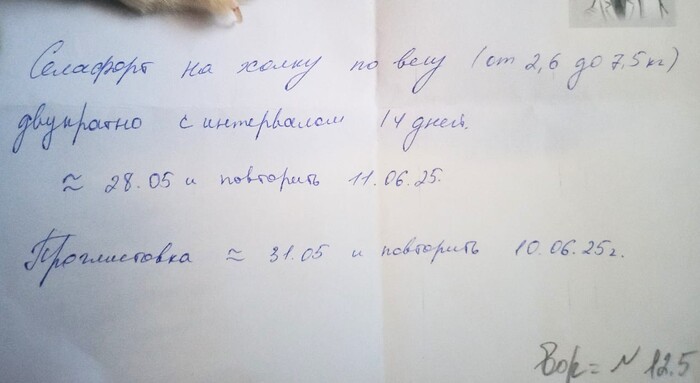 Селафорт на холку по весу (от 2,6 до 7,5 кг)
двукратно с интервалом 14 дней.
≈ 28.05 и повторить 11.06.25.
Проглистовка ≈ 31.05 и повторить 10.06.25г.
N 12.5